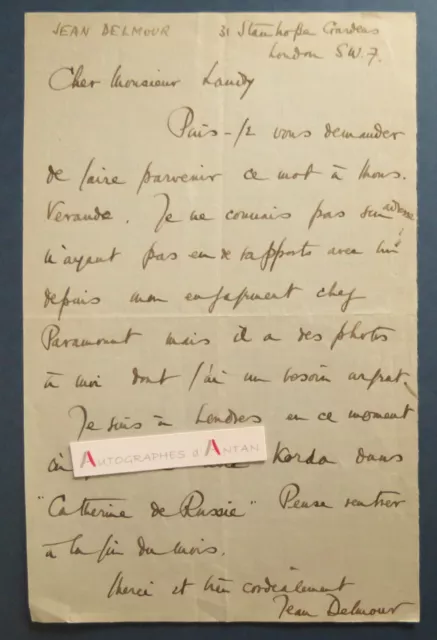 JEAN DELMOUR
31 Stanhope Gardens
London SW.7.
Cher Monsieur Landy
Puis-je vous demander
de faire parvenir ce mot à Mons.
Verande. Je ne connais pas son adresse
n'ayant pas eu de rapports avec lui
depuis mon engagement chez
Paramount mais il a des photos
à moi dont j'ai un besoin urgent.
Je suis à Londres en ce moment
Korda dans
AUTOGRAPHES d'ANTAN
"Catherine de Russie" Pense rentrer
à la fin du mois.
Merci et très cordialement
Jean Delmour